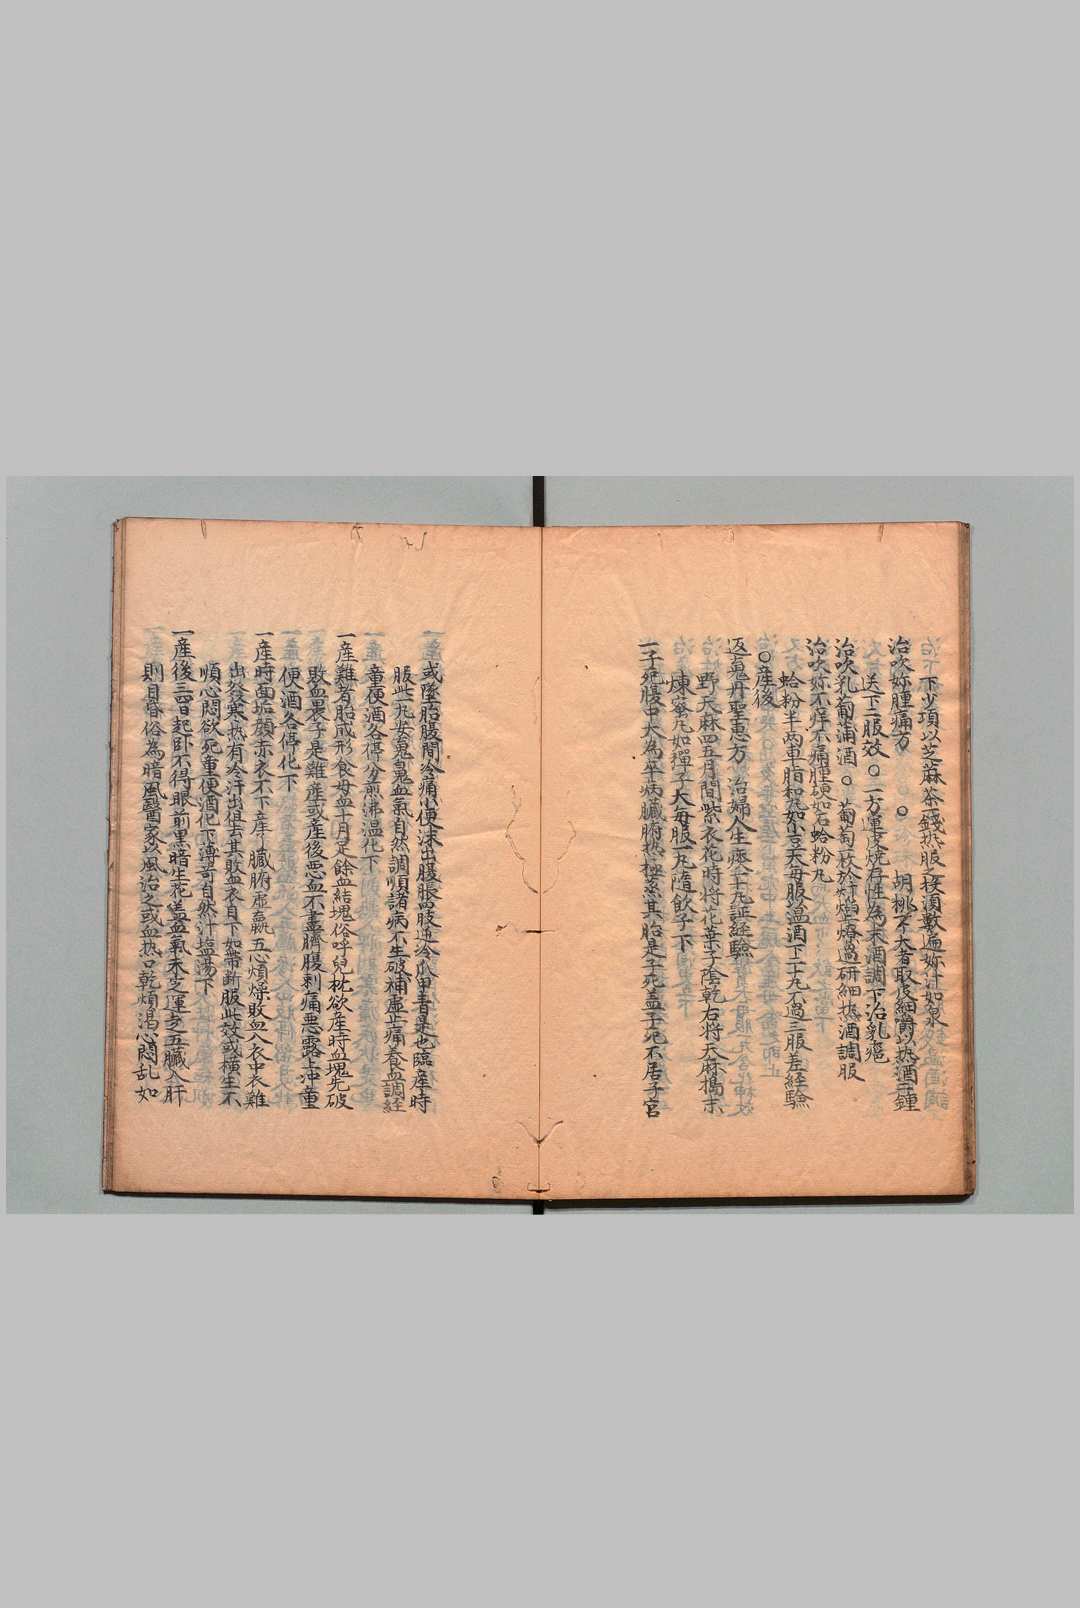 下少項以芝麻茶一錢热服之投湏數遍妳汁如泉
治吹妳腫痛方　○　胡桃不大者取皮細嚼以热酒三鍾
送下二服效○一方連皮燒存性為末酒調下治乳癰
治吹乳葡萄酒○葡萄一枚於灯焰燎過研細热酒調服
治吹妳不痒不痛腫硬如石蛤粉丸
蛤粉半两車脂和丸如小豆大每服温酒下二十九不過三服差経驗
○産後
返魂丹聖惠方　治婦人生産十九証経驗
野天麻四五月間紫衣花時将花葉子陰乾右将天麻搗末
煉蜜丸如彈子大每服一丸隨飲子下
一子死腹中大為卒病臟腑热極其胎是子死盖子死不居子宮
或墜胎腹間冷痛小便沫出腹脹四肢逆冷爪甲青是也臨産時
服此一丸安魂魄血氣自然調順諸病不生破補虚止痛養血調経
童便酒各停分煎沸温化下
一産難者胎成形食母血十月足餘血結塊俗呼兒枕欲産時血塊先破
敗血裹子是難産或産後惡血不盡臍腹刺痛惡露上冲童
便酒各停化下
一産時面垢顔赤衣不下産了臟腑虚羸五心煩燥敗血入衣中衣難
出發寒热有冷汗出但去其敗血衣自下如帶断服此效或橫生不
順心悶欲死童便酒化下薄荷自然汁塩湯下
一産後三四日起卧不得眼前黒暗生花盖血氣未定運走五臟入肝
則目昏俗為暗風醫家於風治之或血热口乾煩渴心悶乱如